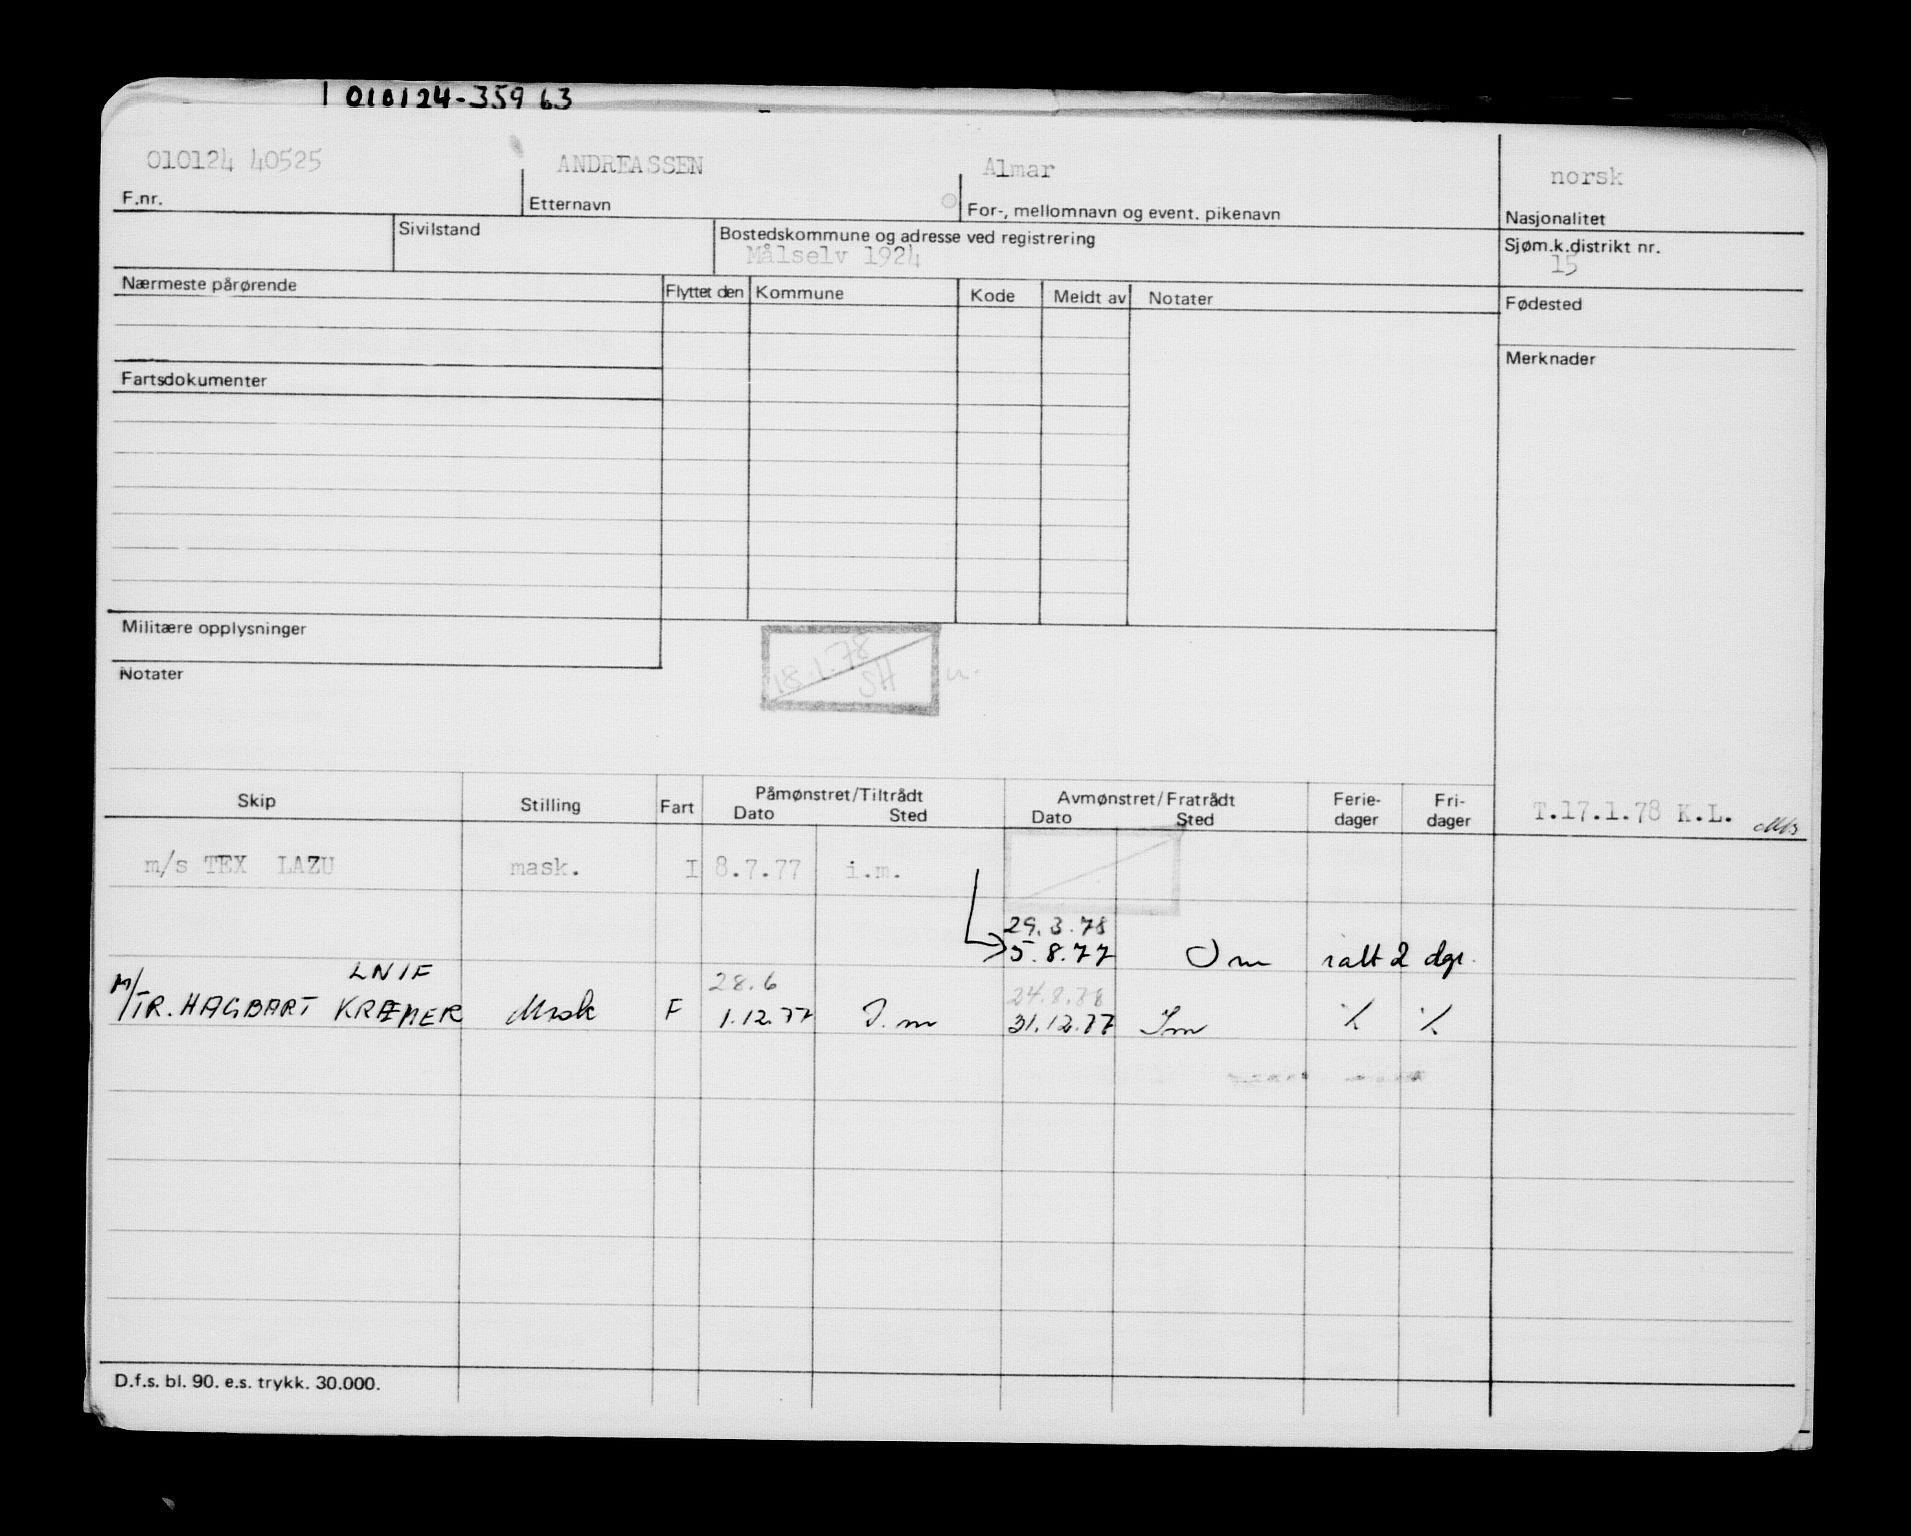 010124-359 63
010124 40525 ANDREASSEN Almar norsk
F.nr. Etternavn For-, mellomnavn og event. pikenavn Nasjonalitet
Sivilstand Bostedskommune og adresse ved registrering Sjøm.k.distrikt nr.
Målselv 1924 15
Nærmeste pårørende Flyttet den Kommune Kode Meldt av Notater Fødested
Merknader
Fartsdokumenter
Militære opplysninger
18.1.78
SH
Notater
Skip Stilling Fart Påmønstret/Tiltrådt Avmønstret/Fratrådt Ferie- Fri-
Dato Sted Dato Sted dager dager
T.17.1.78 K.L.
m/s TEX LAZU mask. I 8.7.77 i.m.
29.3.78
5.8.77 Jm ialt 2 dgr.
LNIF 28.6 24.8.78
M/TR. HAGBART KRÆMER Mask F 1.12.77 I.m 31.12.77 Im ٪ ٪
D.f.s. bl. 90. e.s. trykk. 30.000.